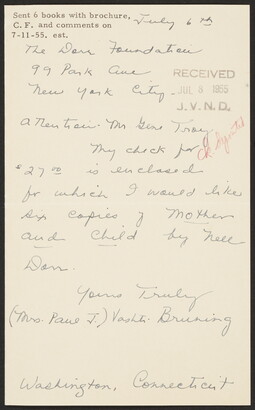 Sent 6 books with brochure,
C. F. and comments on
7-11-55. est.
July 6th
The Dorr Foundation
99 Park Ave
New York City.
RECEIVED
JUL 8 1955
J. V. N. D.
Attention: Mr Gene Tracy
My check for
$27.00 is enclosed
for which I would like
six copies of Mother
and Child by Nell
Dorr.
Yours Truly
(Mrs. Paul J.) Vashti Bruning
Washington, Connecticut